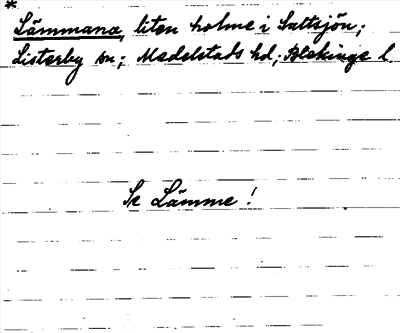 *
Lämmana, liten holme i Saltsjön;
Listerby sn; Medelstads hd; Blekinge l.
Se Lämme!